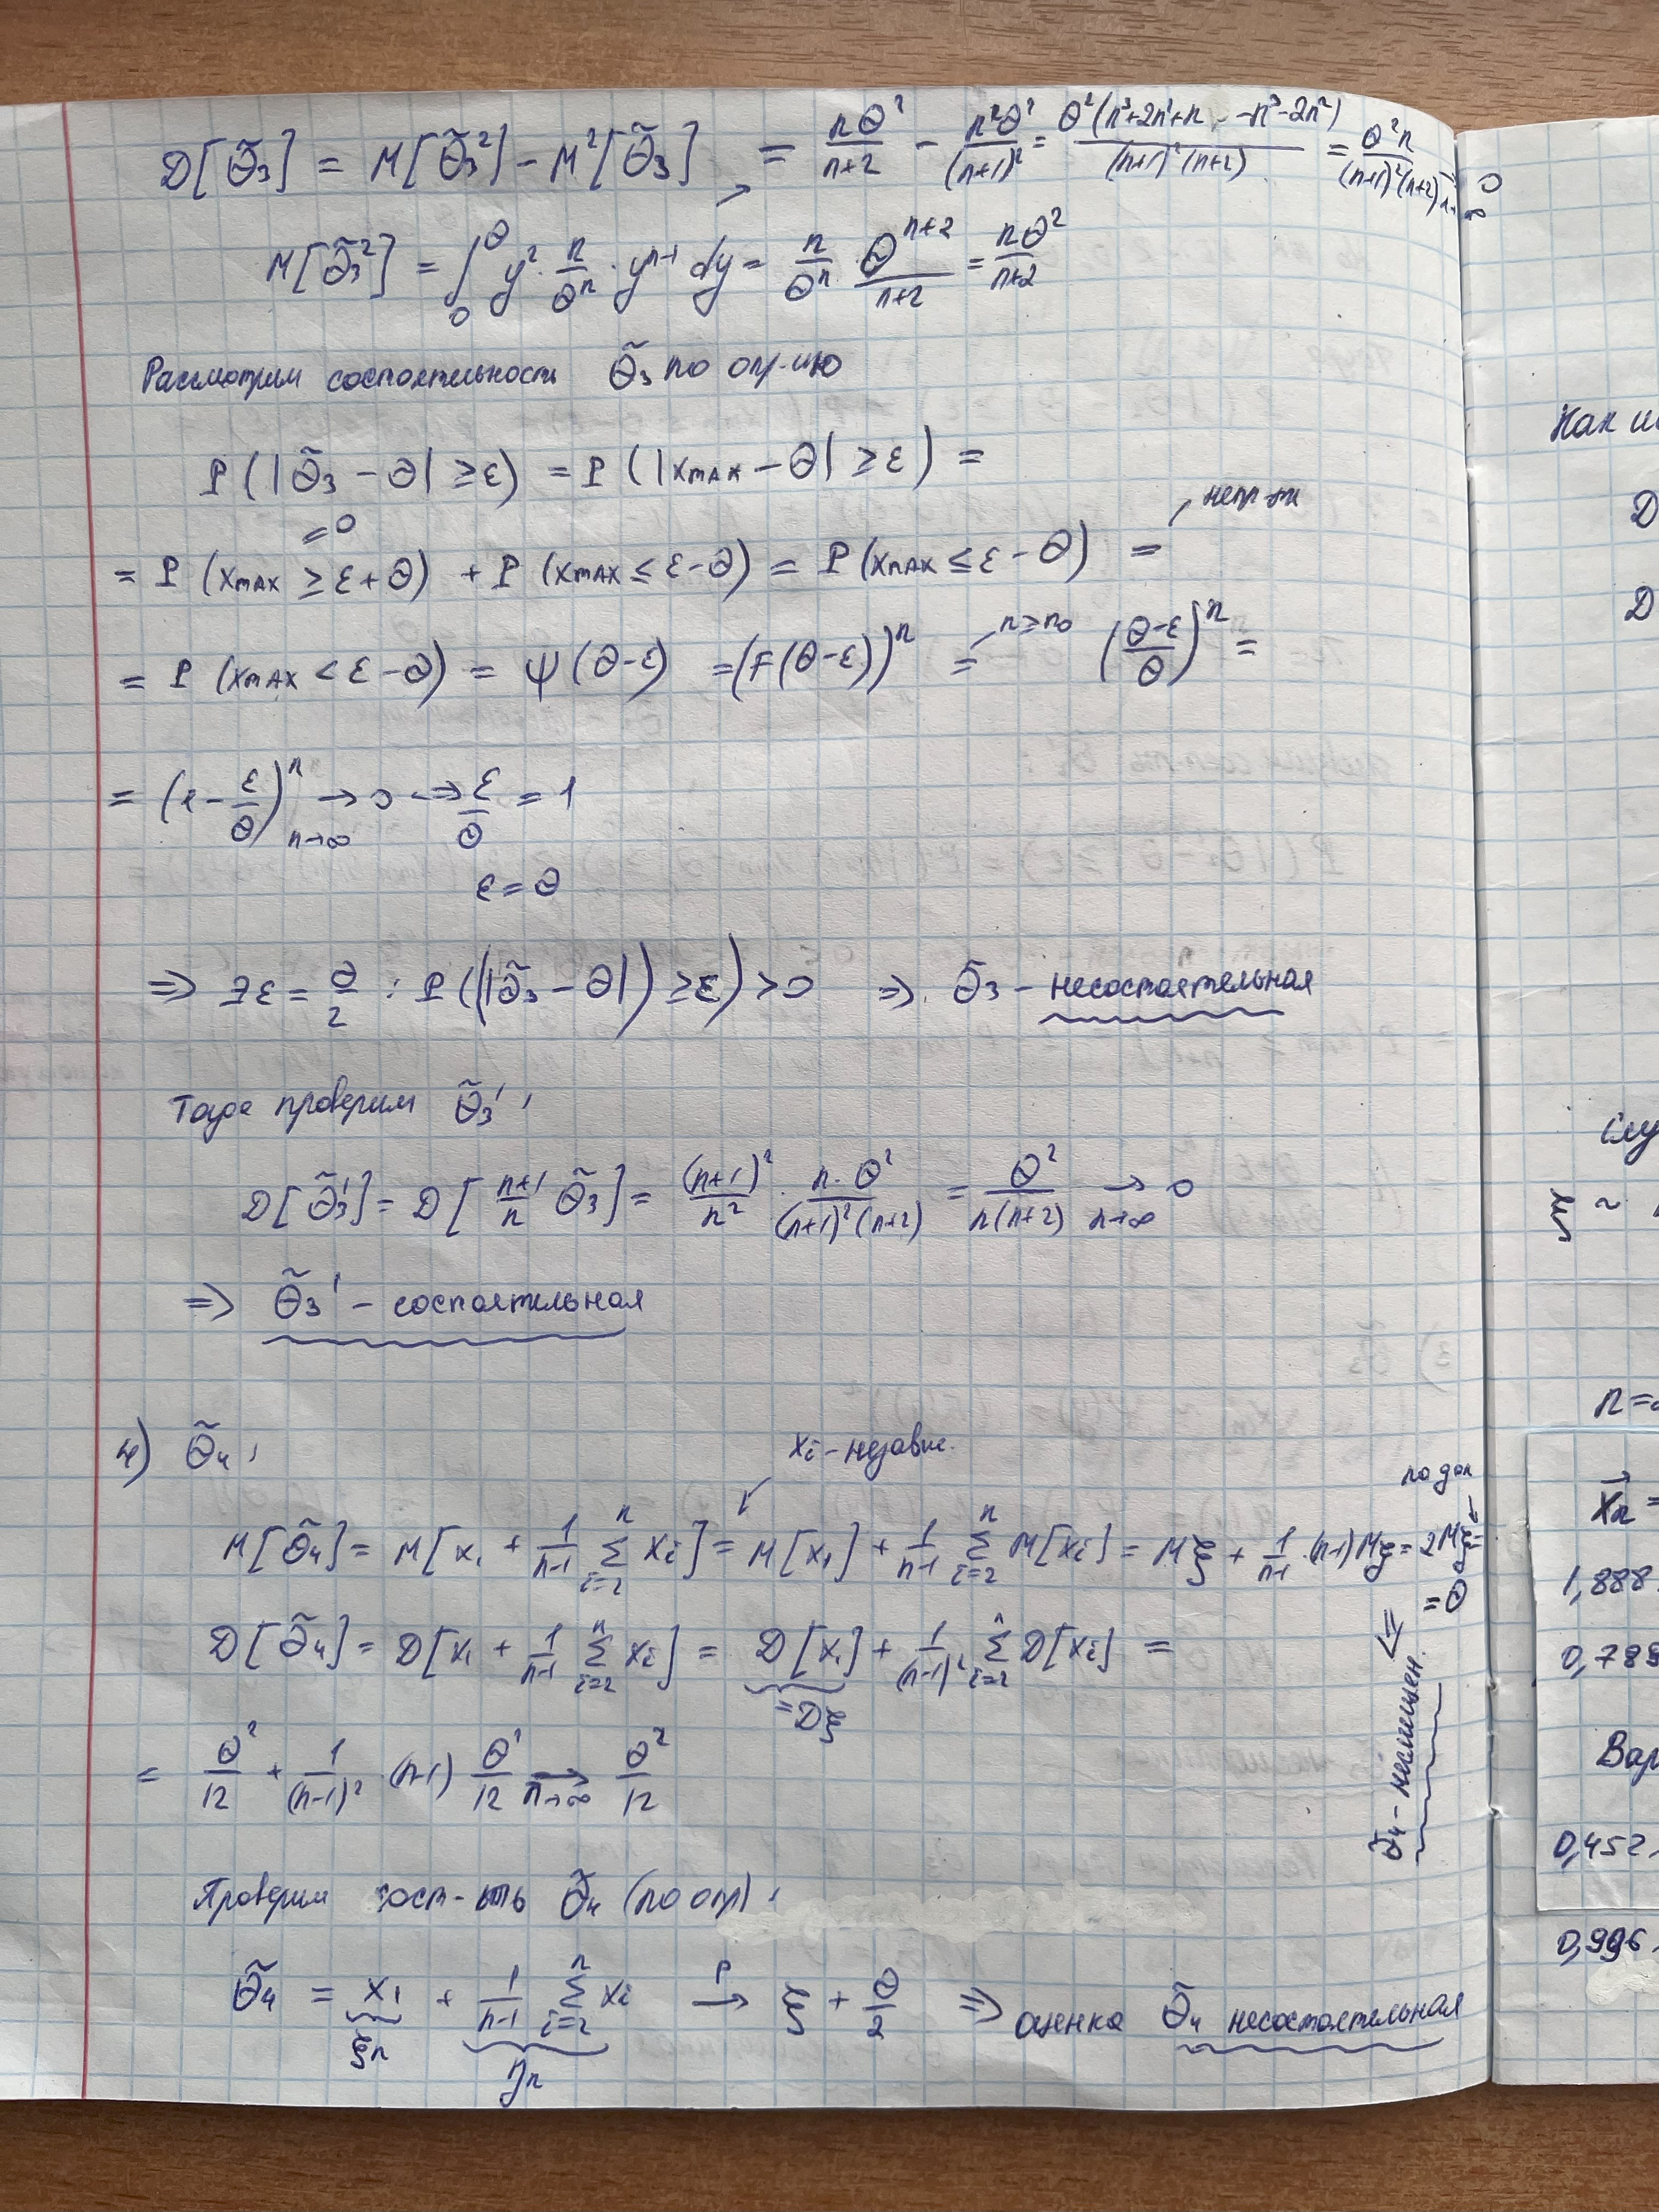 D[θ̃₃] = M[θ̃₃²] - M²[θ̃₃] = nθ²/(n+2) - n²θ²/(n+1)² = θ²(n³+2n²+n -n³-2n²)/((n+1)²(n+2)) = θ²n/((n+1)²(n+2)) → 0 n→∞
M[θ̃₃²] = ∫₀^θ y² · n/θⁿ · yⁿ⁻¹ dy = n/θⁿ · θⁿ⁺²/(n+2) = nθ²/(n+2)
Рассмотрим состоятельность θ̃₃ по опр-ию
P(|θ̃₃ - θ| ≥ ε) = P(|xmax - θ| ≥ ε) =
=0
непр-ти
= P(xmax ≥ ε+θ) + P(xmax ≤ ε-θ) = P(xmax ≤ ε-θ) =
n≥n₀
= P(xmax < ε-θ) = ψ(θ-ε) = (F(θ-ε))ⁿ = ((θ-ε)/θ)ⁿ =
= (1 - ε/θ)ⁿ → 0 n→∞ ⇒ ε/θ = 1
ε = θ
⇒ ∃ε = θ/2 : P((|θ̃₃ - θ|) ≥ ε) > 0 ⇒ θ̃₃ - несостоятельная
Тогда проверим θ̃₃' :
D[θ̃₃'] = D[(n+1)/n θ̃₃] = (n+1)²/n² · n·θ²/((n+1)²(n+2)) = θ²/(n(n+2)) → 0 n→∞
⇒ θ̃₃' - состоятельная
4) θ̃₄ :
xᵢ - независ.
по док
M[θ̃₄] = M[x₁ + 1/(n-1) Σᵢ₌₂ⁿ xᵢ] = M[x₁] + 1/(n-1) Σᵢ₌₂ⁿ M[xᵢ] = Mξ + 1/(n-1) · (n-1)Mξ = 2Mξ =
= θ
⇒ θ̃₄ - несмещен.
D[θ̃₄] = D[x₁ + 1/(n-1) Σᵢ₌₂ⁿ xᵢ] = D[x₁] + 1/(n-1)² Σᵢ₌₂ⁿ D[xᵢ] =
=Dξ
= θ²/12 + 1/(n-1)² · (n-1) θ²/12 → n→∞ θ²/12
Проверим сост-ть θ̃₄ (по опр) :
θ̃₄ = x₁ + 1/(n-1) Σᵢ₌₂ⁿ xᵢ →ᴾ ξ + θ/2 ⇒ оценка θ̃₄ несостоятельная
ξn ηn
D
D
ξ ~
n=
x⃗n =
1,888
0,789
Вар
0,452
0,996